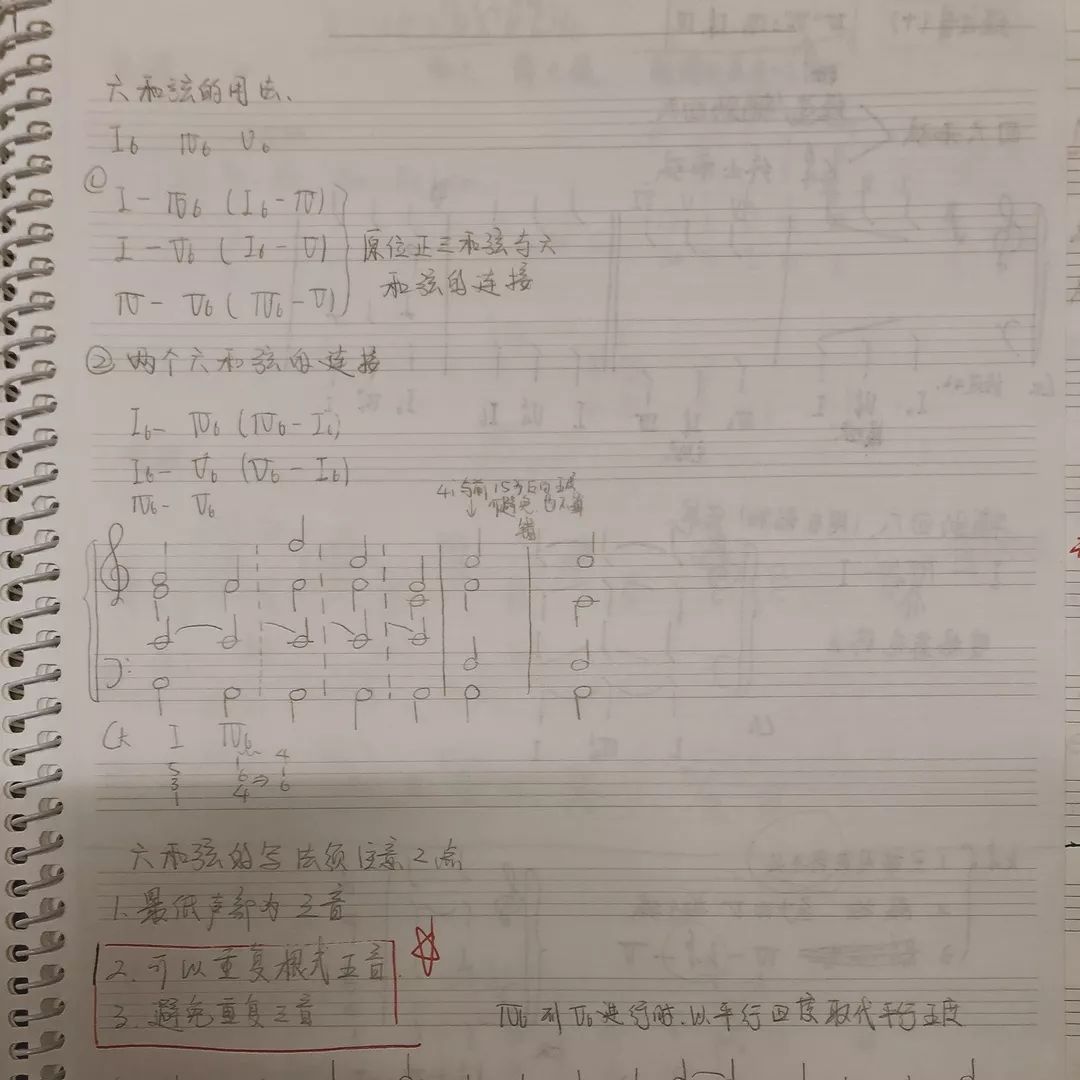 六和弦的用法.
I₆ IV₆ V₆
① I - IV₆ (I₆ - IV)
I - V₆ (I₆ - V) 原位正三和弦与六
和弦的连接
IV - V₆ (IV₆ - V)
② 两个六和弦的连接
I₆ - IV₆ (IV₆ - I₆)
I₆ - V₆ (V₆ - I₆)
IV₆ - V₆
错
I IV₆
5 1 4
3 6 ⇒ 1
1 4 6
六和弦的写法须注意2点
1. 最低声部为三音
2. 可以重复根或五音.
3. 避免重复三音
IV₆到V₆进行时.以平行四度取代平行五度